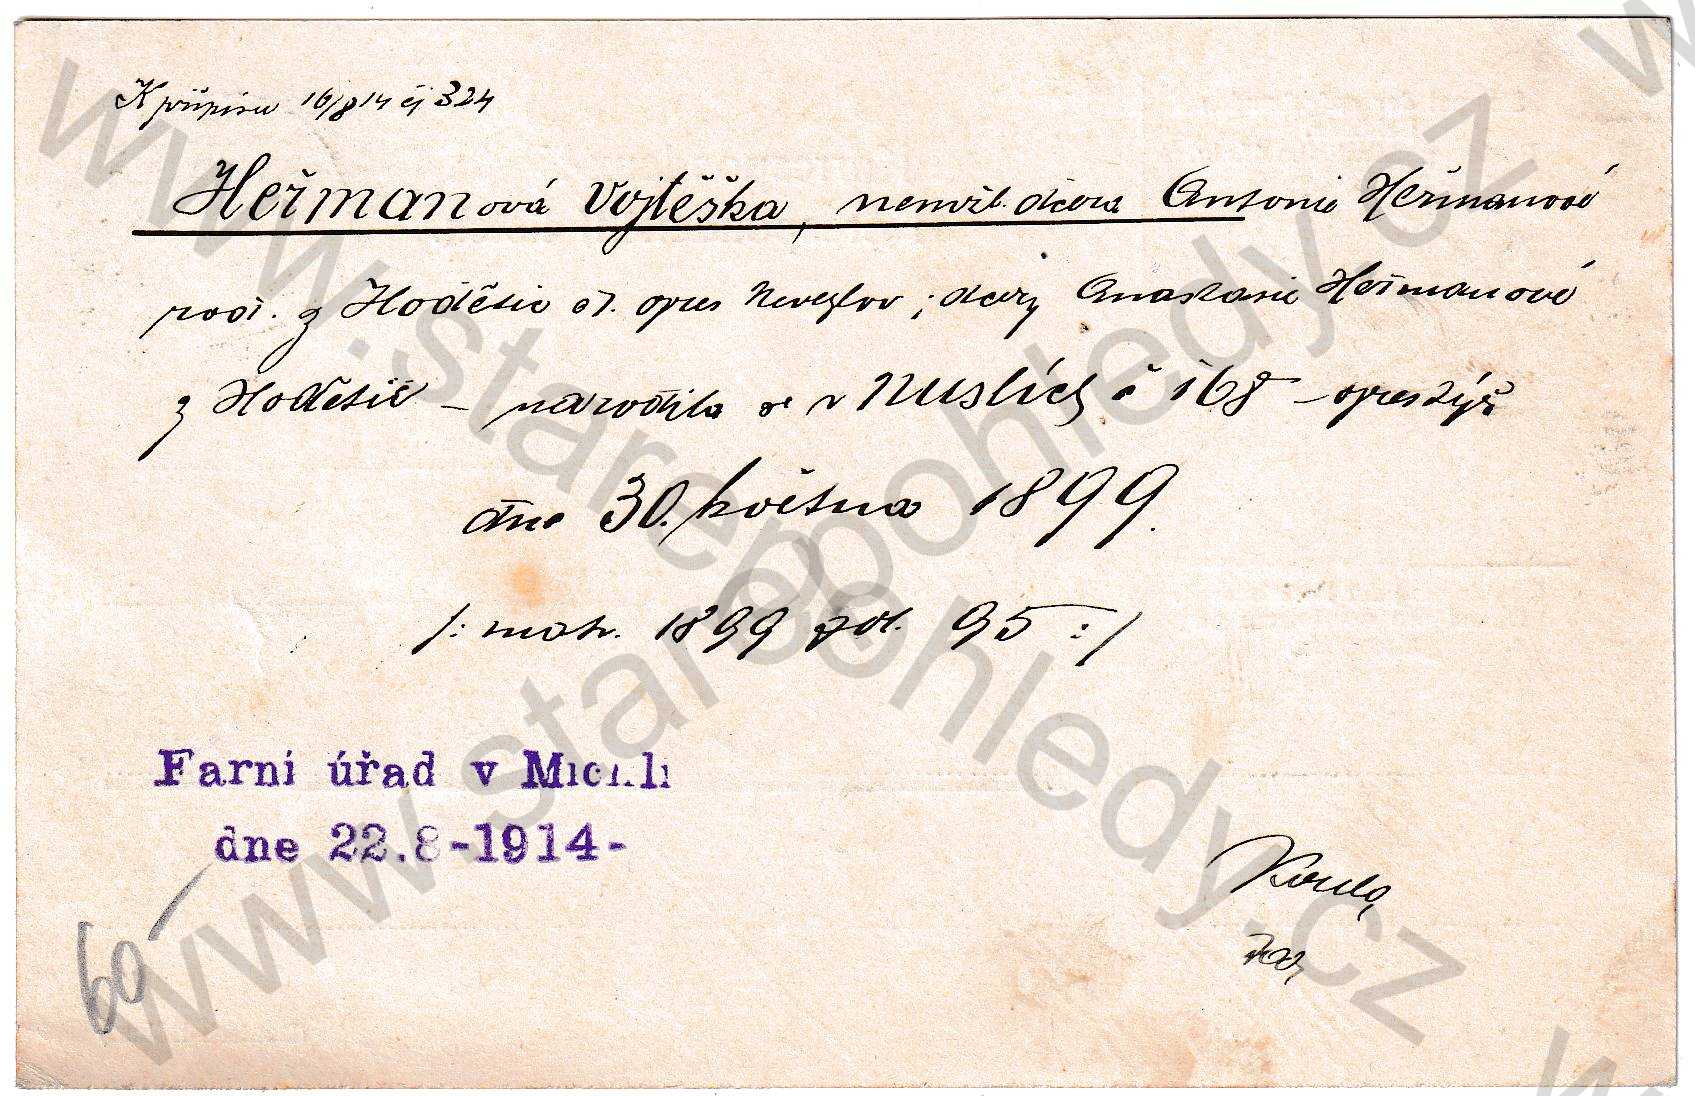 K přípisu 16/8 14 čj 324
Heřmanová Vojtěška, nemžl. dcera Antonie Heřmanové
rod. z Hodětic čl. okres Neveklov; dcery Anastasie Heřmanové
z Hodětic – narodila se v Nuslích č 168 – okres týž
dne 30. května 1899.
/: matr. 1899 fol. 95 :/
Farní úřad v Michli
dne 22.8-1914-
60
www.starepohledy.cz
www.starepohledy.cz